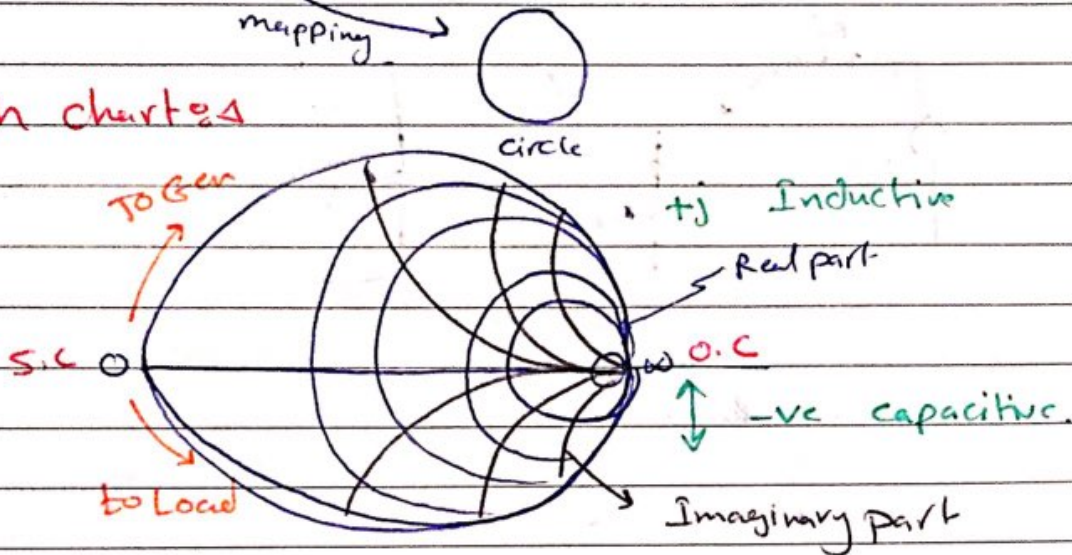 mapping
circle
n chart
To Gen
+j Inductive
Real part
S.C 0
∞ O.C
-ve capacitive.
to Load
Imaginary part